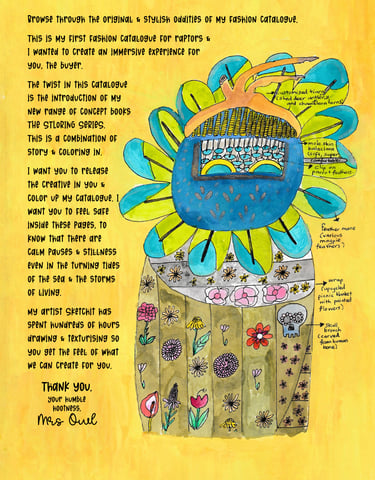 Browse through the original & stylish oddities of my fashion catalogue.
This is my first fashion catalogue for raptors &
I wanted to create an immersive experience for
you, the buyer.
The twist in this catalogue
is the introduction of my
new range of concept books
The Stloring Series.
This is a combination of
story & coloring in.
I want you to release
the creative in you &
color up my catalogue. I
want you to feel safe
inside these pages, to
know that there are
calm pauses & stillness
even in the turning tides
of the sea & the storms
of living.
My artist Sketchit has
spent hundreds of hours
drawing & texturising so
you get the feel of what
we can create for you.
Thank you.
your humble
hootness,
Mrs Owl
customized tiara
(shed deer antlers,
and
mole skin
balaclava
clip on
parrot feathers
feather mane
(various
magpie
feathers)
wrap
(upcycled
picnic blanket
with painted
flowers)
skull
brooch
(carved
from human
bone)